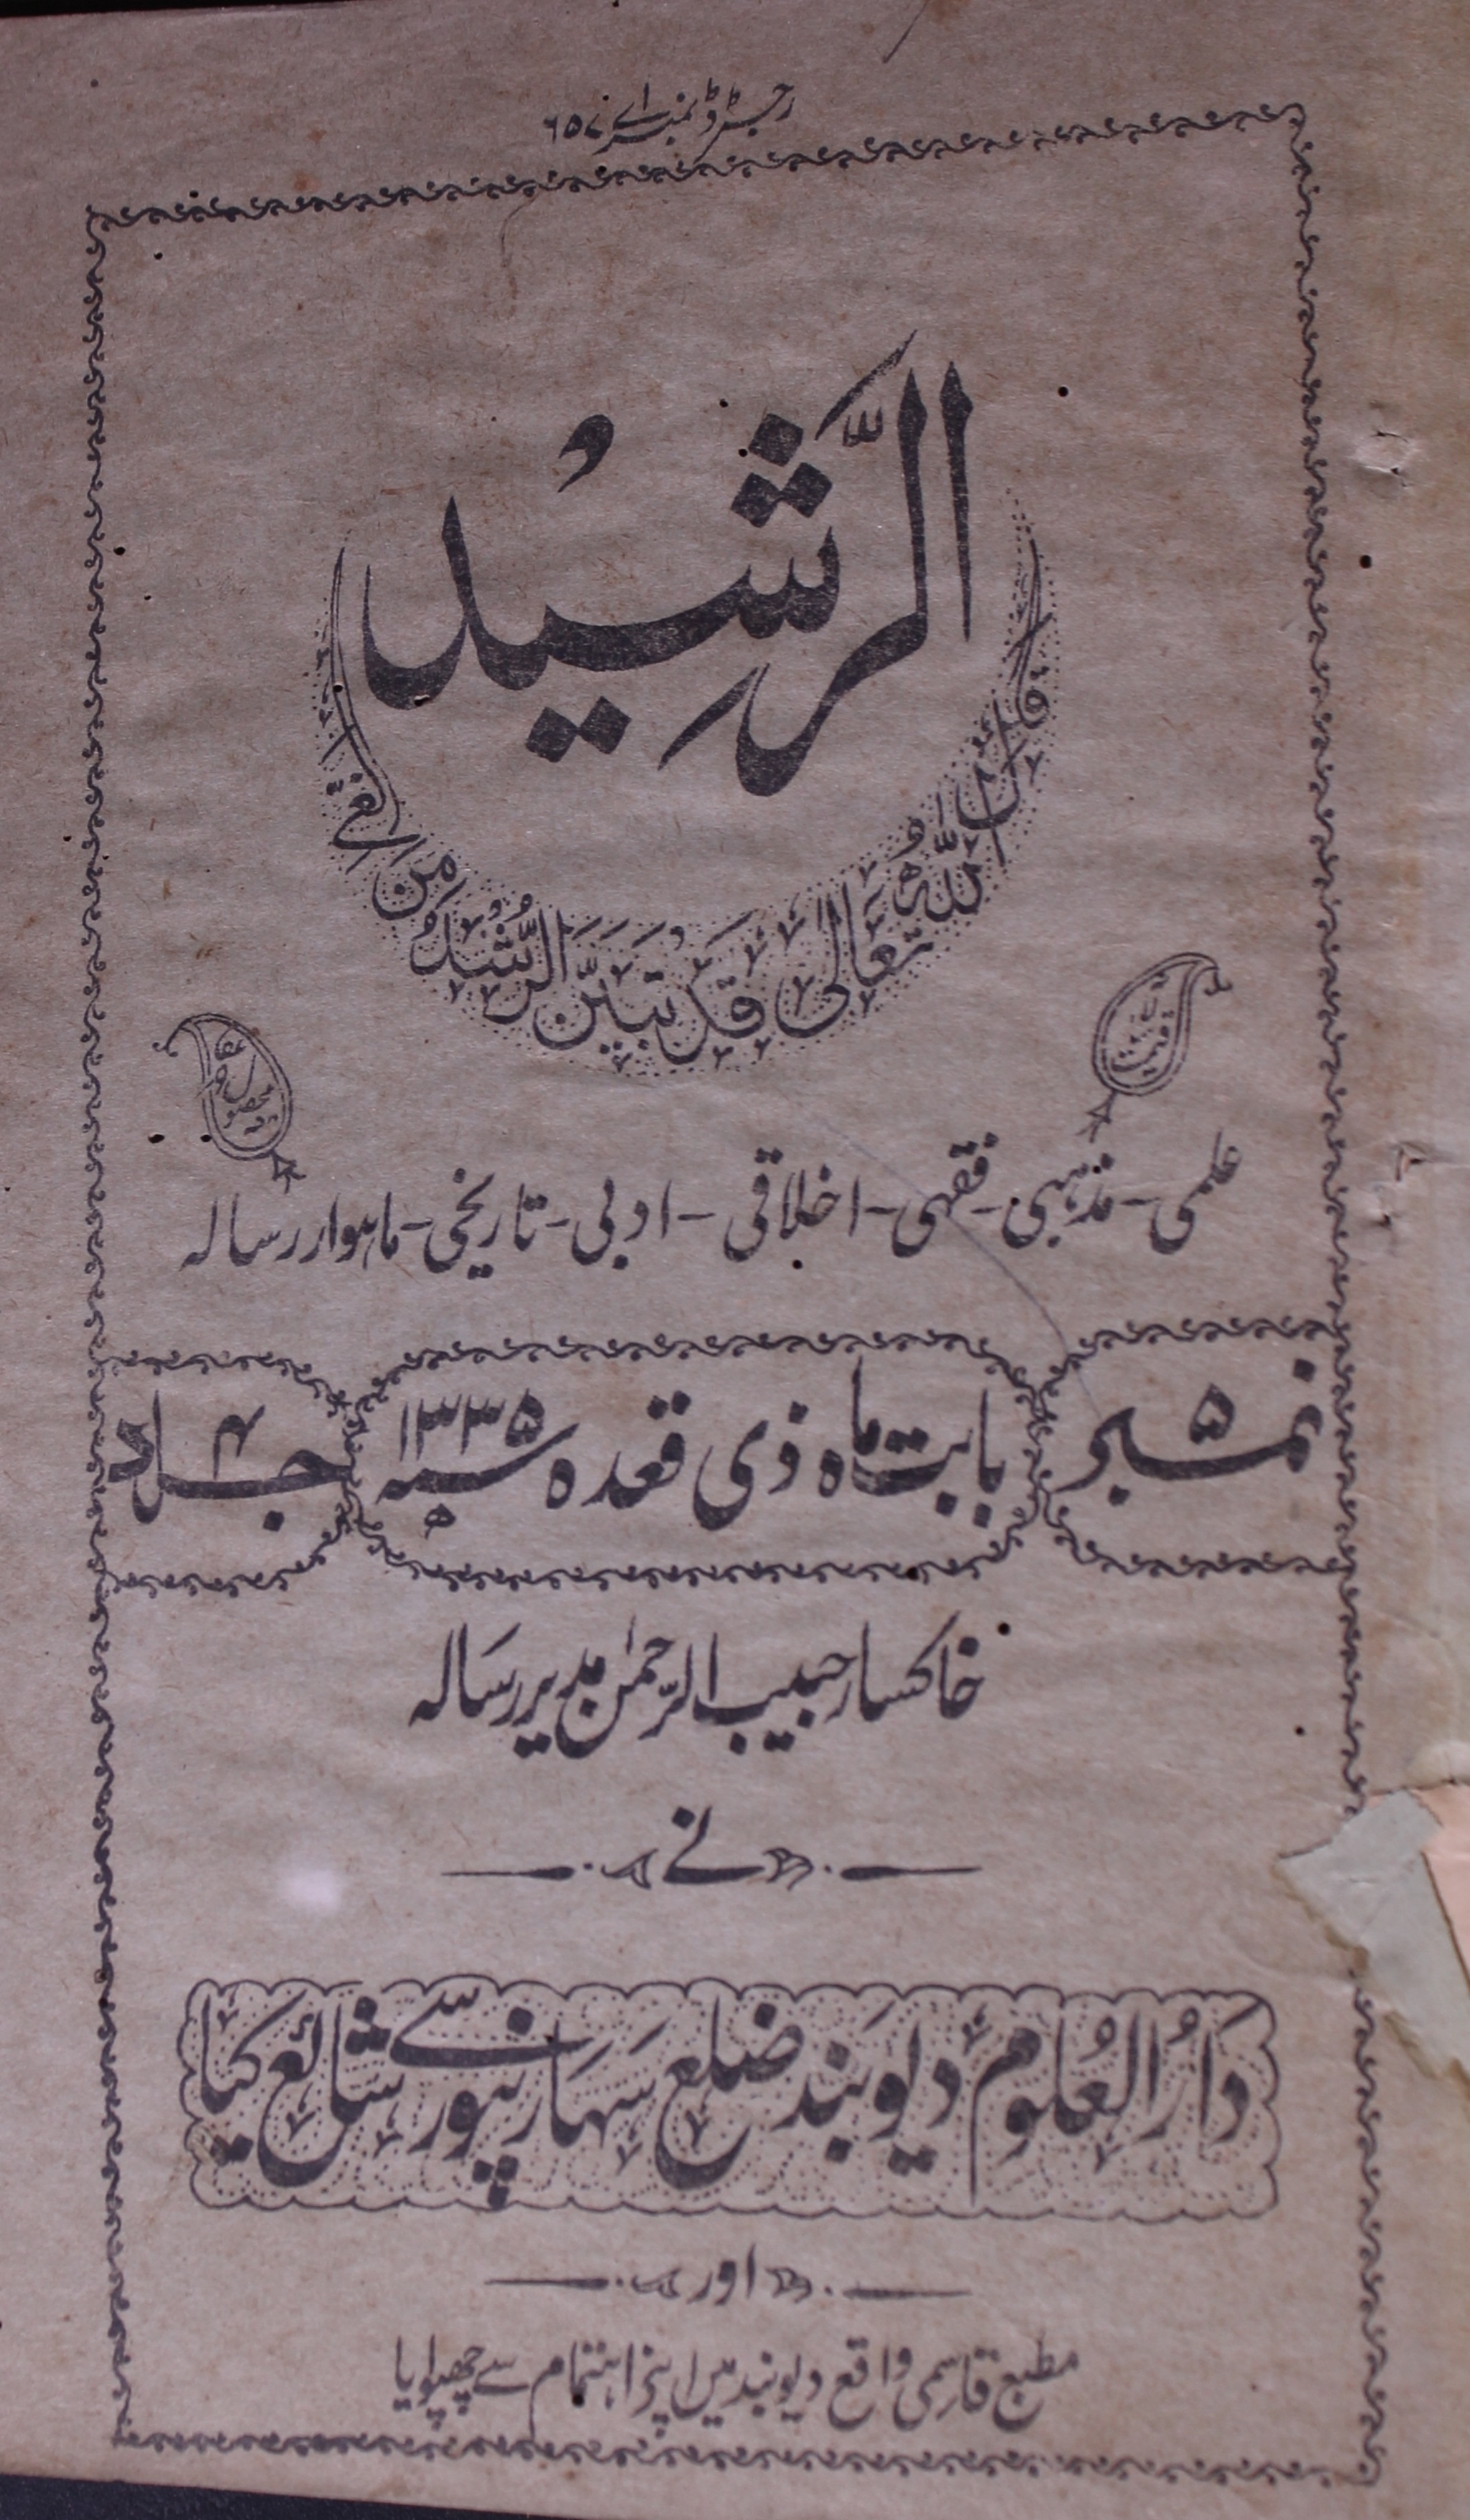 رجسٹرڈ نمبر اے ۶۵۷
الرَّشِیْد
قَالَ اللّٰهُ تَعَالٰى قَدْ تَبَيَّنَ الرُّشْدُ مِنَ الْغَيِّ
قیمت
محصول
علمی - مذہبی - فقہی - اخلاقی - ادبی - تاریخی - ماہوار رسالہ
نمبر ۵
بابت ماہ ذی قعدہ ۱۳۳۵ سنہ ھ
جلد ۴
خاکسار حبیب الرّحمٰن مدیر رسالہ
نے
دَارُ العُلوم دیوبَند ضلع سَہَارنپور سے شائع کیا
اور
مطبع قاسمی واقع دیوبند میں اپنے اہتمام سے چھپوایا